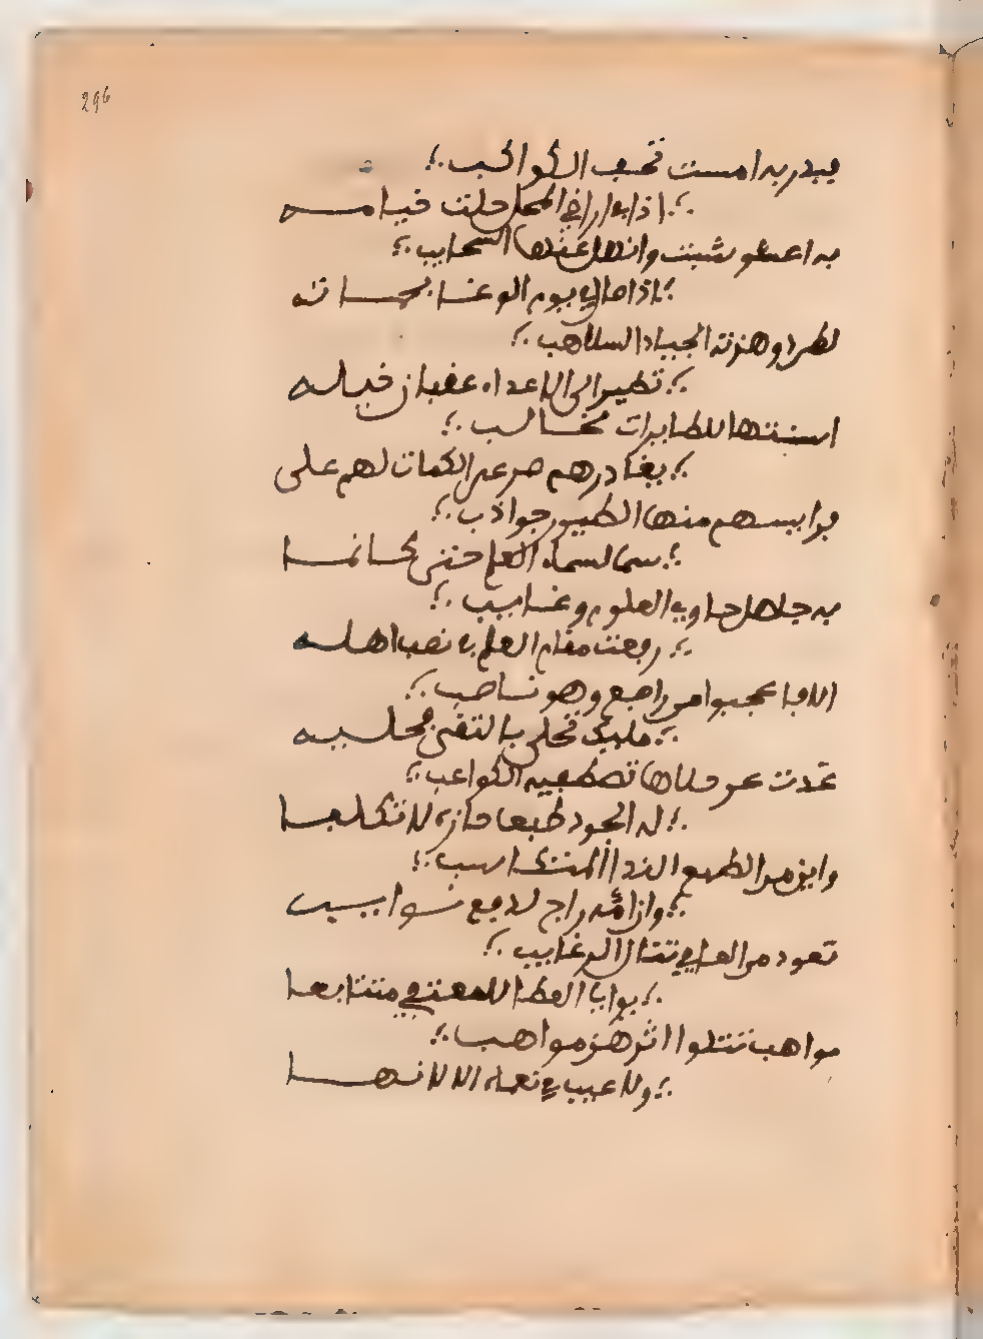 296
ببدر به امست تحف الكواكب
اذا بدارا في المحل حلت خيامه
به اعشوشبت وانهل عنها السحايب
اذا صال يوم الوغا بحسانه
لطرد وهزته الجياد السلاهب
تطير الى الاعداء عقبان خيله
اسنتها للطايرات مخالب
يغادرهم صرعى الكمات لهم على
فرايسهم منها الطيور جواذب
سما لسماء العلم حتى كانما
به جلا هل حاوي العلوم وغايب
رفعت مقام العلم في نصب اهله
الا فاعجبوا من رافع وهو ناصب
مليك تحلى بالتقى فحلسه
غدت عن حلاها تصطفيه الكواعب
له الجود طبعا حازه لا تكلفا
واين من الطبع الندا المتكاسب
وان امه راج لدفع نوايب
تعود من العافي تنال الرغايب
يوافي العطا للمعتفي متتابعا
مواهب تتلوا اثرهن مواهب
ولا عيب في نعماه الا لانها